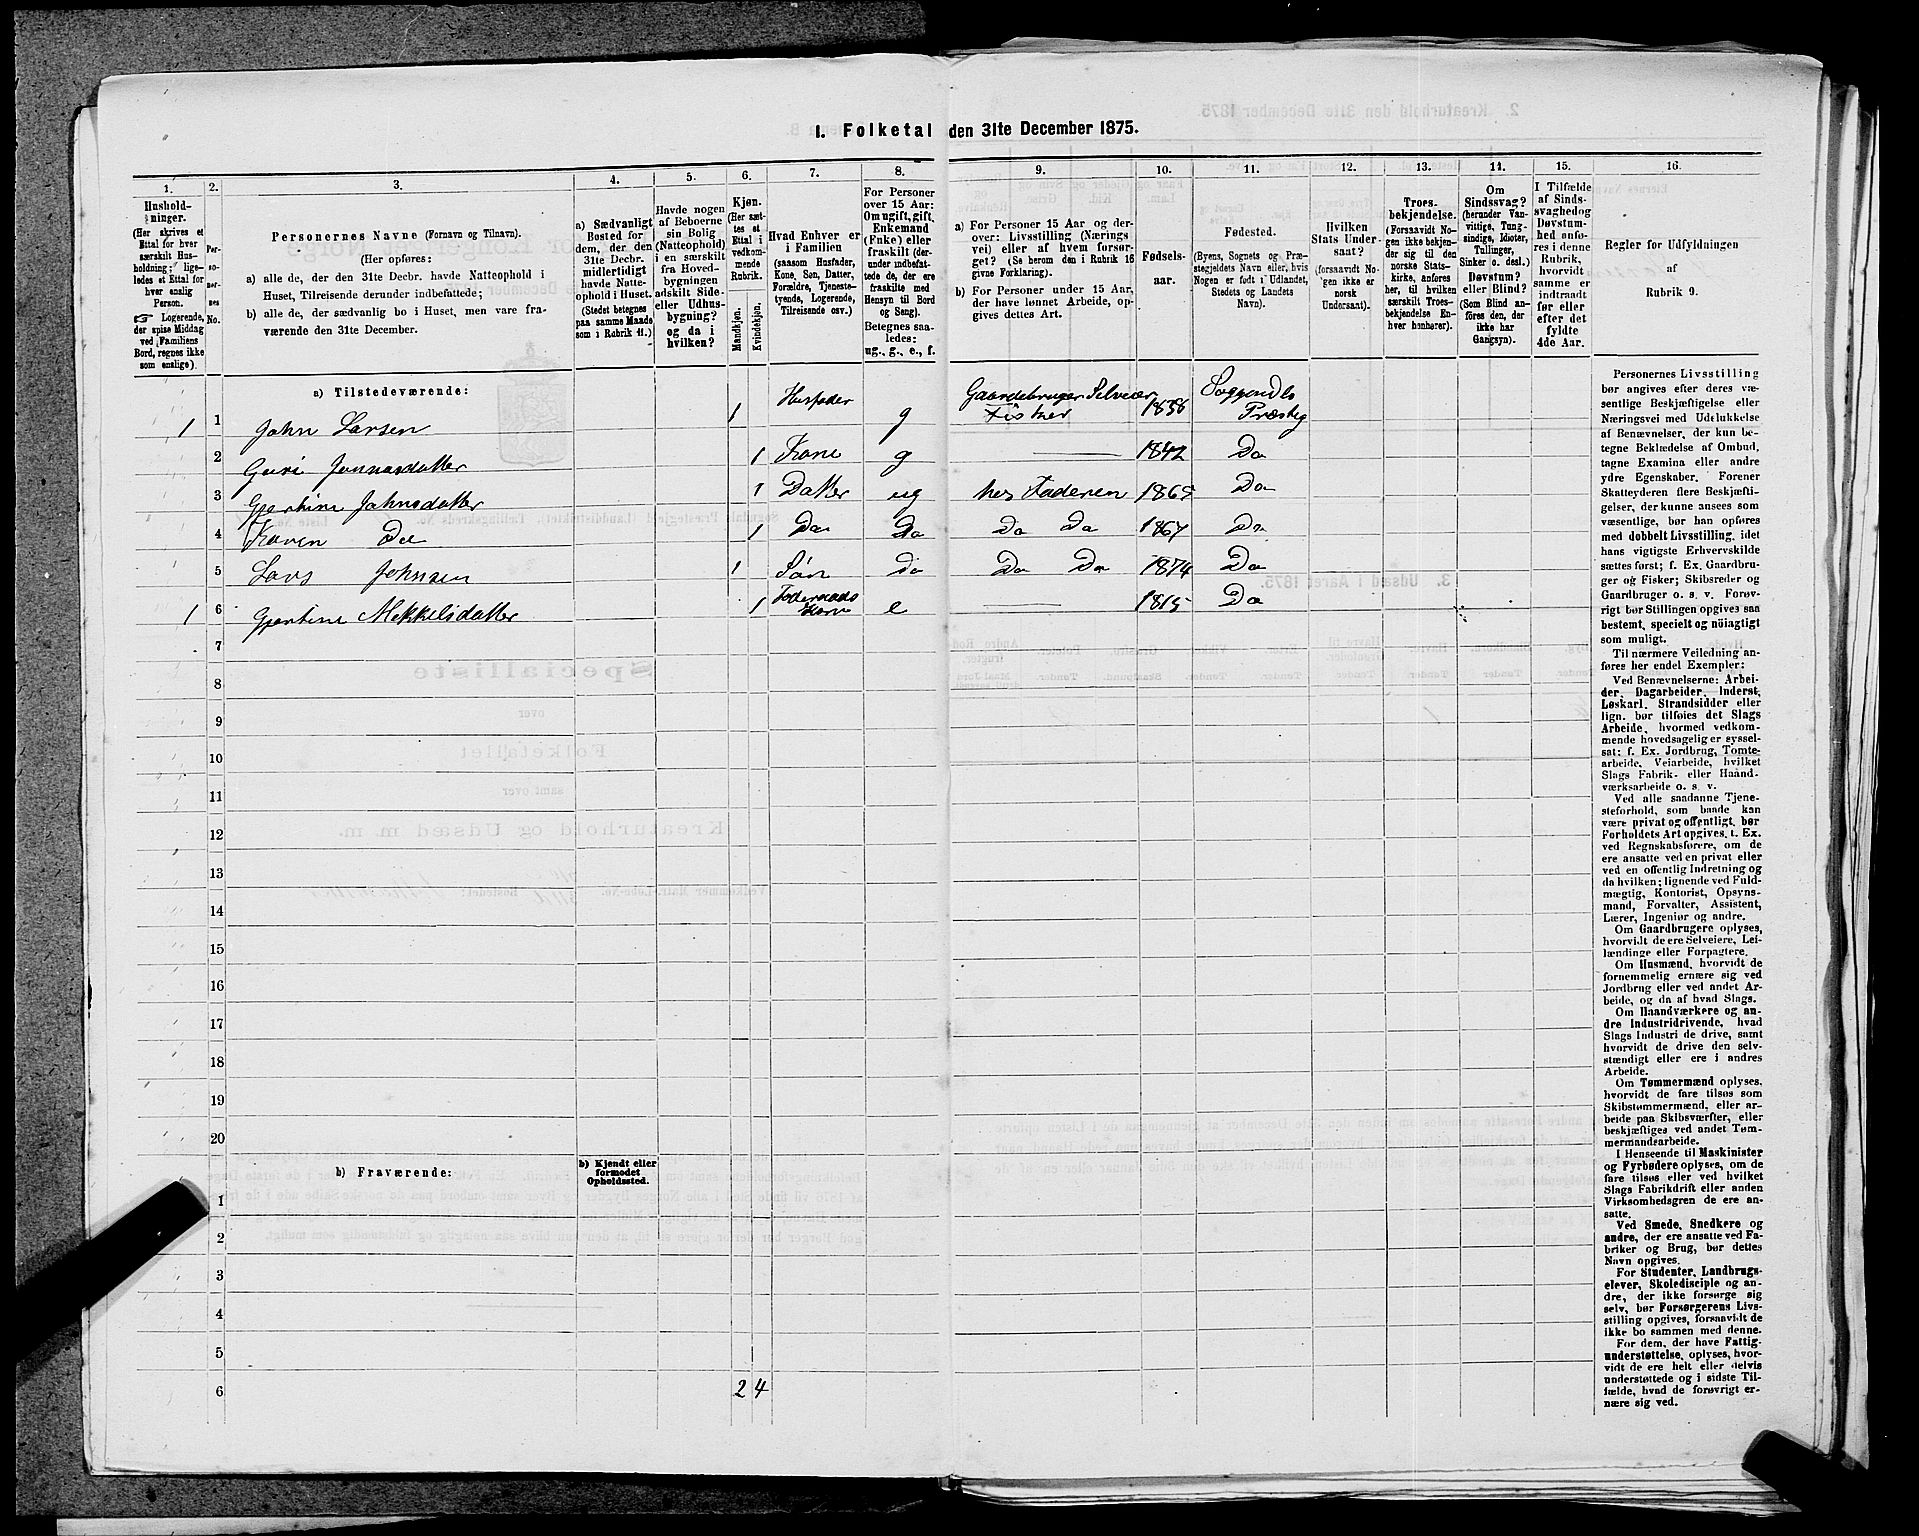 I. Folketal den 31te December 1875.
1. 2. 3. 4. 5. 6. 7. 8. 9. 10. 11. 12. 13. 14. 15. 16.
Hushold-
ninger.
(Her skrives et
Ettal for hver
særskilt Hus-
holdning; lige-
ledes et Ettal for
hver enslig
Person.
☞ Logerende,
der spise Middag
ved Familiens
Bord, regnes ikke
som enslige).
Per-
so-
ner-
nes
No.
Personernes Navne (Fornavn og Tilnavn).
(Her opføres:
a) alle de, der den 31te Decbr. havde Natteophold i
Huset, Tilreisende derunder indbefattede;
b) alle de, der sædvanlig bo i Huset, men vare fra-
værende den 31te December.
a) Sædvanligt
Bosted for
dem, der den
31te Decbr.
midlertidigt
havde Natte-
ophold i Huset.
(Stedet betegnes
paa samme Maade
som i Rubrik 11.)
Havde nogen
af Beboerne
sin Bolig
(Natteophold)
i en særskilt
fra Hoved-
bygningen
adskilt Side-
eller Udhus-
bygning?
og da i
hvilken?
Kjøn.
(Her sæt-
tes et
Ettal i
vedkom-
mende
Rubrik.
Mandkjøn.
Kvindekjøn.
Hvad Enhver er
i Familien
(saasom Husfader,
Kone, Søn, Datter,
Forældre, Tjeneste-
tyende, Logerende,
Tilreisende osv.)
For Personer
over 15 Aar:
Om ugift, gift,
Enkemand
(Enke) eller
fraskilt (her-
under indbefat-
tede de, der ere
fraskilte med
Hensyn til Bord
og Seng).
Betegnes saa-
ledes:
ug., g., e., f.
a) For Personer 15 Aar og der-
over: Livsstilling (Nærings
vei) eller af hvem forsør-
get? (Se herom den i Rubrik 16
givne Forklaring).
b) For Personer under 15 Aar,
der have lønnet Arbeide, op-
gives dettes Art.
Fødsels-
aar.
Fødested.
(Byens, Sognets og Præ-
stegjeldets Navn eller, hvis
Nogen er født i Udlandet,
Stedets og Landets
Navn).
Hvilken
Stats Under-
saat?
(forsaavidt No-
gen ikke er
norsk
Undersaat).
Troes-
bekjendelse.
(Forsaavidt No-
gen ikke bekjen-
der sig til den
norske Stats-
kirke, anføres
her, til hvilken
særskilt Troes-
bekjendelse En-
hver henhører).
Om
Sindssvag?
(herunder Van-
vittige, Tung-
sindige, Idioter,
Tullinger,
Sinker o. desl.)
Døvstum?
eller Blind?
(Som Blind an-
føres den, der
ikke har
Gangsyn).
I Tilfælde
af Sinds-
svaghed og
Døvstum-
hed anfø-
res i denne
Rubrik,
hvorvidt
samme er
indtraadt
før eller
efter det
fyldte
4de Aar.
Regler for Udfyldningen
af
Rubrik 9.
a) Tilstedeværende:
1 1 John Larsen 1 Husfader g Gaardebruger Selveier Fisker 1836 Soggendls Præsteg
2 Guri Jonnasdatter 1 Kone g 1842 Do
3 Gjertine Johnsdatter 1 Datter ug hos Faderen 1865 Do
4 Karen Do 1 Do Do Do Do 1867 Do
5 Lars Johnsen 1 Søn do Do Do 1874 Do
1 6 Gjertine Mekkelsdatter 1 Føderaads Kone e 1815 Do
7
8
9
10
11
12
13
14
15
16
17
18
19
20
b) Fraværende:
b) Kjendt eller
formodet
Opholdssted.
1
2
3
4
5
6 2 4
Personernes Livsstilling
bør angives efter deres væ-
sentlige Beskjæftigelse eller
Næringsvei med Udelukkelse
af Benævnelser, der kun be-
tegne Beklædelse af Ombud,
tagne Examina eller andre
ydre Egenskaber. Forener
Skatteyderen flere Beskjæfti-
gelser, der kunne ansees som
væsentlige, bør han opføres
med dobbelt Livsstilling, idet
hans vigtigste Erhvervskilde
sættes først; f. Ex. Gaardbru-
ger og Fisker; Skibsreder og
Gaardbruger o. s. v. Forøv-
rigt bør Stillingen opgives saa
bestemt, specielt og nöiagtigt
som muligt.
Til nærmere Veiledning an-
føres her endel Exempler:
Ved Benævnelserne: Arbei-
der, Dagarbeider, Inderst,
Løskarl, Strandsidder eller
lign. bør tilføies det Slags
Arbeide, hvormed vedkom-
mende hovedsagelig er syssel-
sat; f. Ex. Jordbrug, Tomte-
arbeide, Veiarbeide, hvilket
Slags Fabrik- eller Haand-
værksarbeide o. s. v.
Ved alle saadanne Tjene-
steforhold, som baade kan
være privat og offentligt, bør
Forholdets Art opgives, t. Ex.
ved Regnskabsførere, om de
ere ansatte ved en privat eller
ved en offentlig Indretning og
da hvilken; lignende ved Fuld-
mægtig, Kontorist, Opsyns-
mand, Forvalter, Assistent,
Lærer, Ingeniør og andre.
Om Gaardbrugere oplyses,
hvorvidt de ere Selveiere, Lei-
lændinge eller Forpagtere.
Om Husmænd, hvorvidt de
fornemmelig ernære sig ved
Jordbrug eller ved andet Ar-
beide, og da af hvad Slags.
Om Haandværkere og an-
dre Industridrivende, hvad
Slags Industri de drive, samt
hvorvidt de drive den selv-
stændigt eller ere i andres
Arbeide.
Om Tømmermænd oplyses,
hvorvidt de fare tilsøs som
Skibstømmermænd, eller ar-
beide paa Skibsværfter, eller
beskjæftiges ved andet Tøm-
mermandsarbeide.
I Henseende til Maskinister
og Fyrbødere oplyses, om de
fare tilsøs eller ved hvilket
Slags Fabrikdrift eller anden
Virksomhedsgren de ere an-
satte.
Ved Smede, Snedkere og
andre, der ere ansatte ved Fa-
briker og Brug, bør dettes
Navn opgives.
For Studenter, Landbrugs-
elever, Skoledisciple og an-
dre, der ikke forsørge sig
selv, bør Forsørgerens Livs-
stilling opgives, forsaavidt de
ikke bo sammen med denne.
For dem, der have Fattig-
understøttelse, oplyses, hvor-
vidt de ere helt eller delvis
understøttede og i sidste Til-
fælde, hvad de forøvrigt er-
nære sig ved.